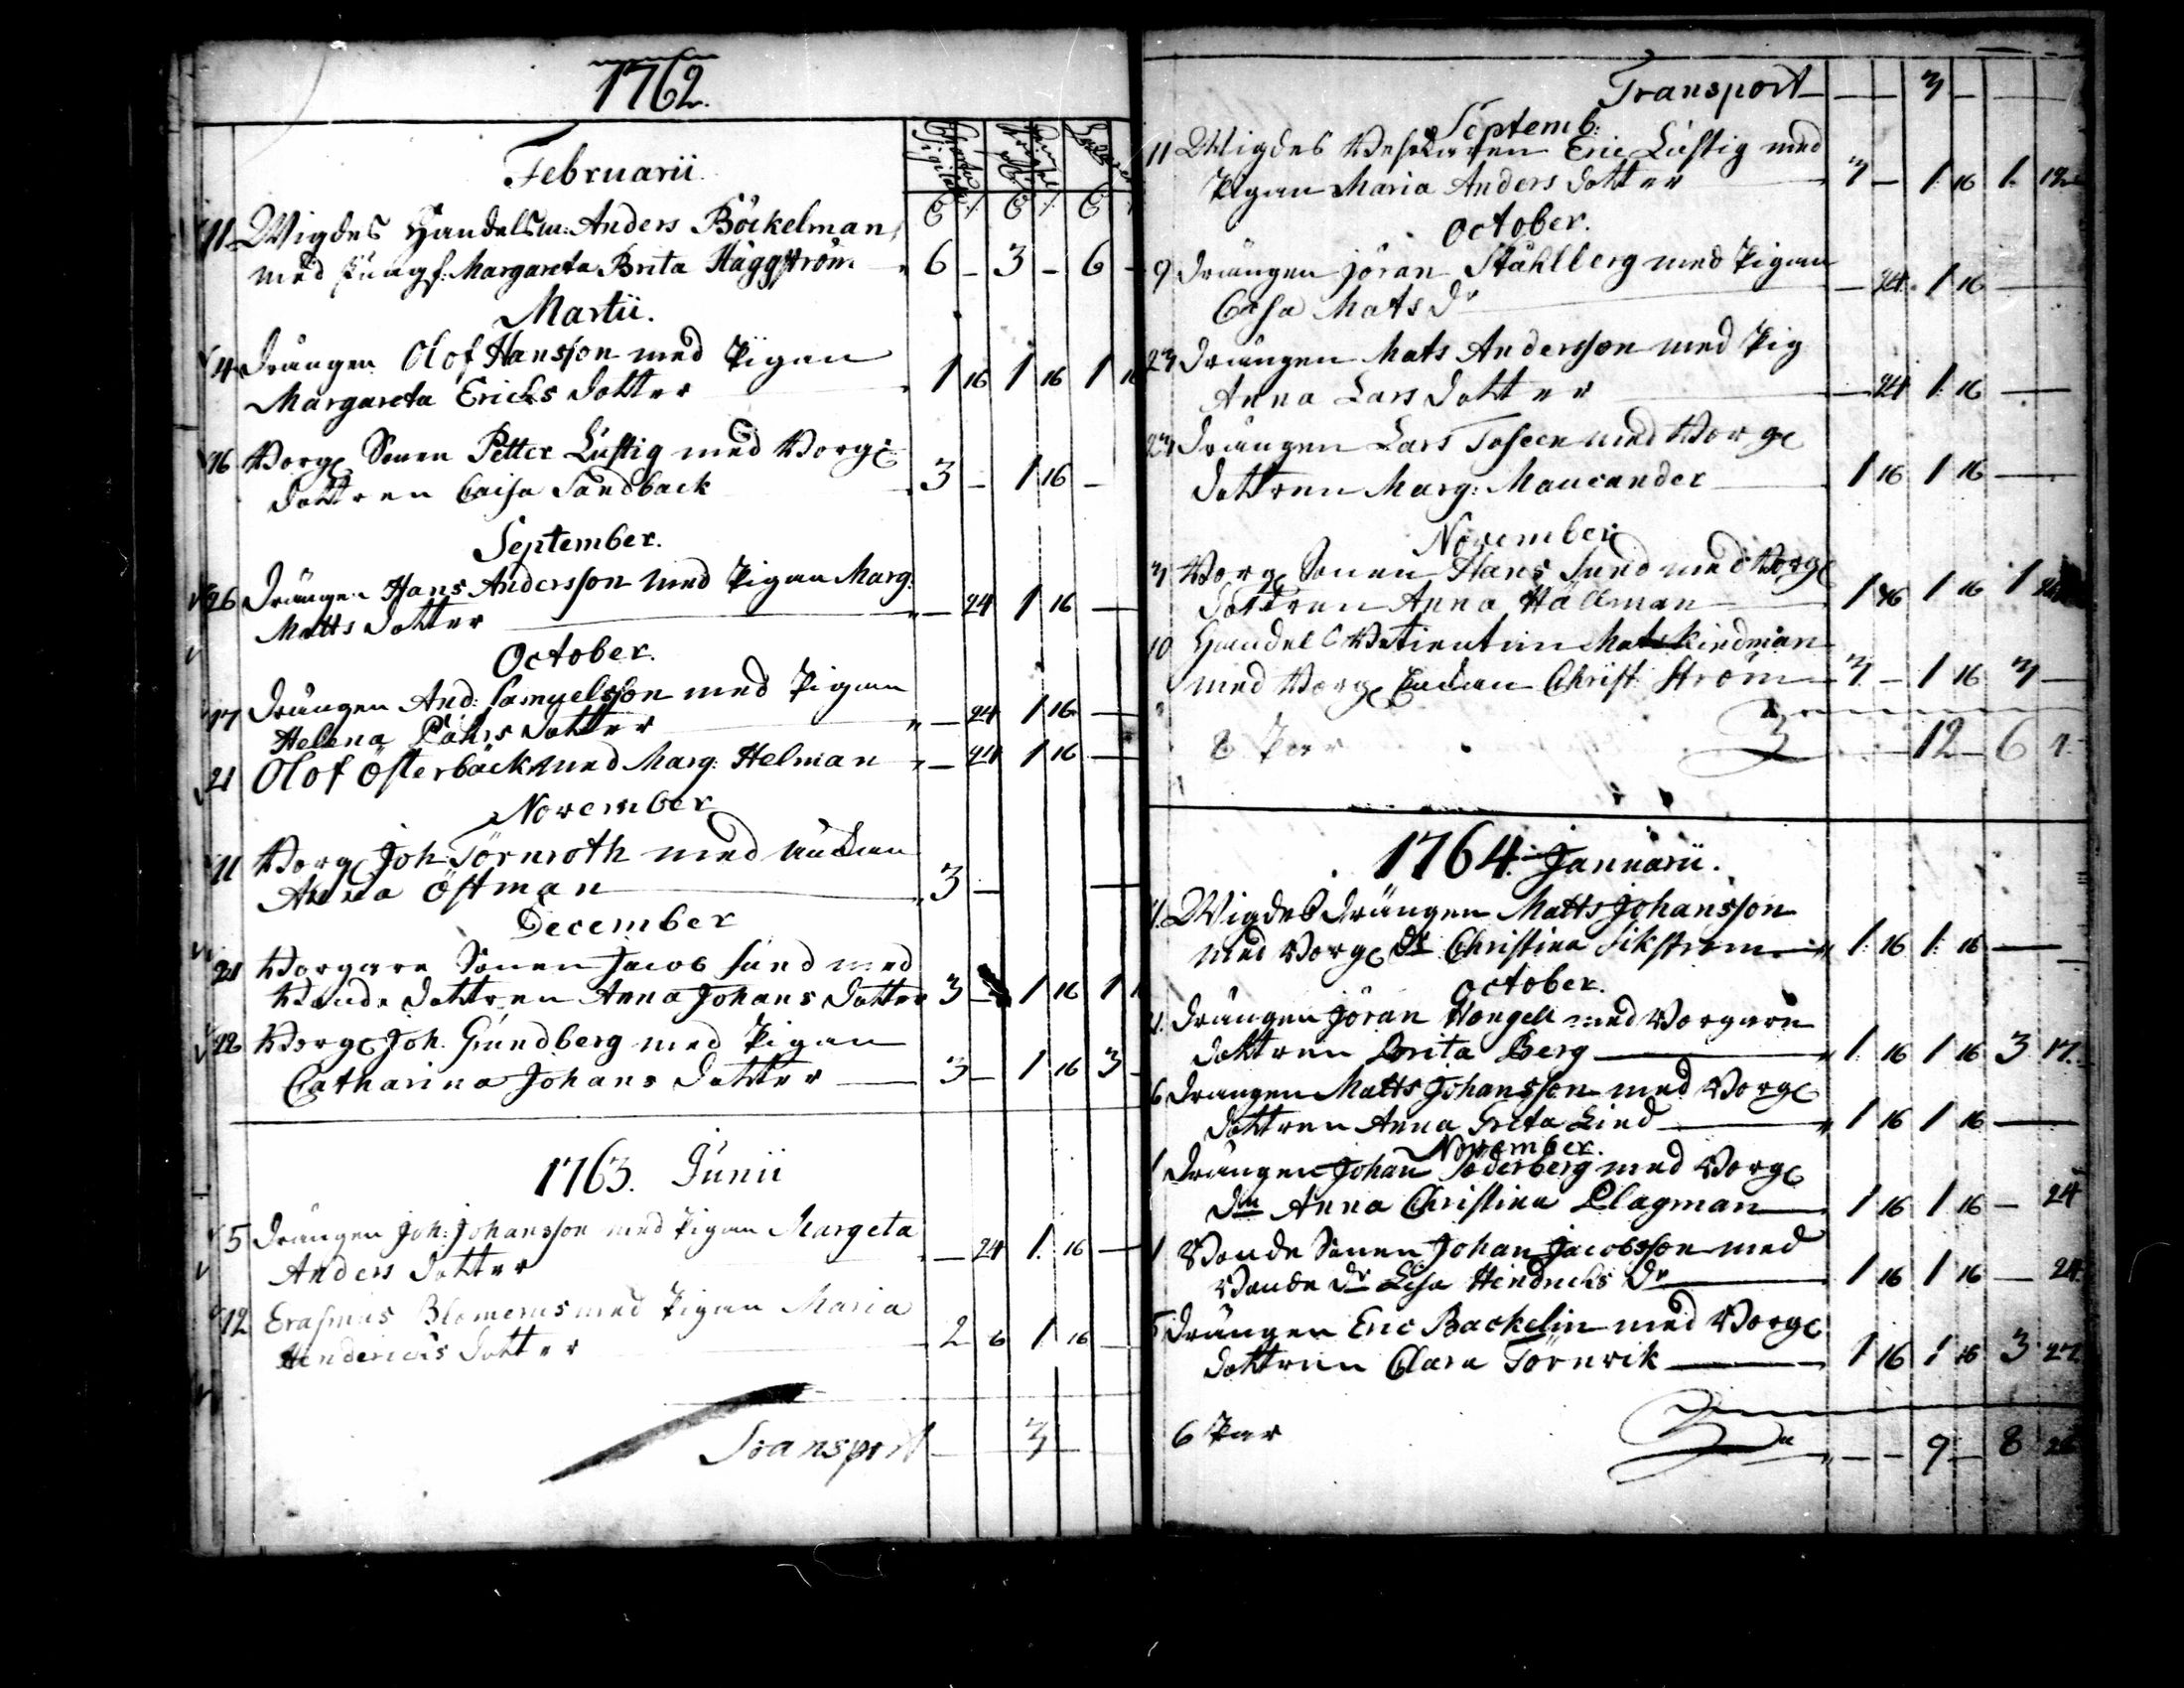 1762.
Februarii.
11 Wigdes Handelsm: Anders Böckelman
med Jungf: Margareta Brita Häggström 6 – 3 – 6 –
Martii.
4 drängen Olof Hansson med Pigan
Margareta Erichs dotter 1 16 1 16 1
16 Borg: Sonen Petter Lustig med Borg:
dottren Caisa Sandback 3 – 1 16 –
September.
26 drängen Hans Andersson med Pigan Marg:
Matts dotter – 24 1 16 –
October.
17 drängen And: Samuelsson med Pigan
Helena Påhls dotter – 24 1 16 –
21 Olof Österback med Marg: Helman – 24 1 16 –
November
11 Borg: Joh: Törnroth med Enkan
Anna Östman 3 – –
December
21 Borgare Sonen Jacob Sund med
Bonde dottren Anna Johans dotter 3 – 1 16 1
22 Borg: Joh: Grundberg med Pigan
Catharina Johans dotter 3 – 1 16 3 –
1763. Junii
5 drängen Joh: Johansson med Pigan Margeta
Anders dotter – 24 1. 16 –
12 Erasmus Blomerus med Pigan Maria
Hendrichs dotter 2 6 1 16 –
Transport – 3 –
Transport – 3 –
Septemb:
11 Wigdes Eric Lustig med
Pigan Maria Anders dotter 3 – 1 16 1. 12
October.
9 drängen Jöran Ståhlberg med Pigan
Caisa Mats dr – 24. 1 16 –
23 drängen Mats Andersson med Pig
Anna Lars dotter – 24 1. 16 –
23 drängen Lars Toseen med Borg:
dottren Marg: Maucander 1 16 1 16 –
November
3 Borg: Sonen Hans Sund med Borg:
dottren Anna Hällman 1 16 1 16 1
10 Handels Betienten Mats Kindman
med Borg: Enckan Christ: Ström 3 – 1 16 3 –
8 Par – 12 – 6
1764. Januarii.
Wigdes drängen Matts Johansson
med Borg: dr Christina Sikström 1. 16 1. 16 –
October.
drängen Jöran Hongell med Borgare
dottren Brita Berg 1. 16 1 16 3 17.
6 drängen Matts Johansson med Borg:
dottren Anna Greta Lind 1 16 1 16 –
November.
1 drängen Johan Söderberg med Borg:
drn Anna Christina Plagman 1 16 1 16 – 24
1 Bonde Sonen Johan Jacobsson med
Bonde dr Lisa Hindrichs dr 1 16 1 16 – 24.
drängen Eric Backelin med Borg:
dottren Clara Törnvik 1 16 1 16 3 27
6 Par – – 9 – 8 26